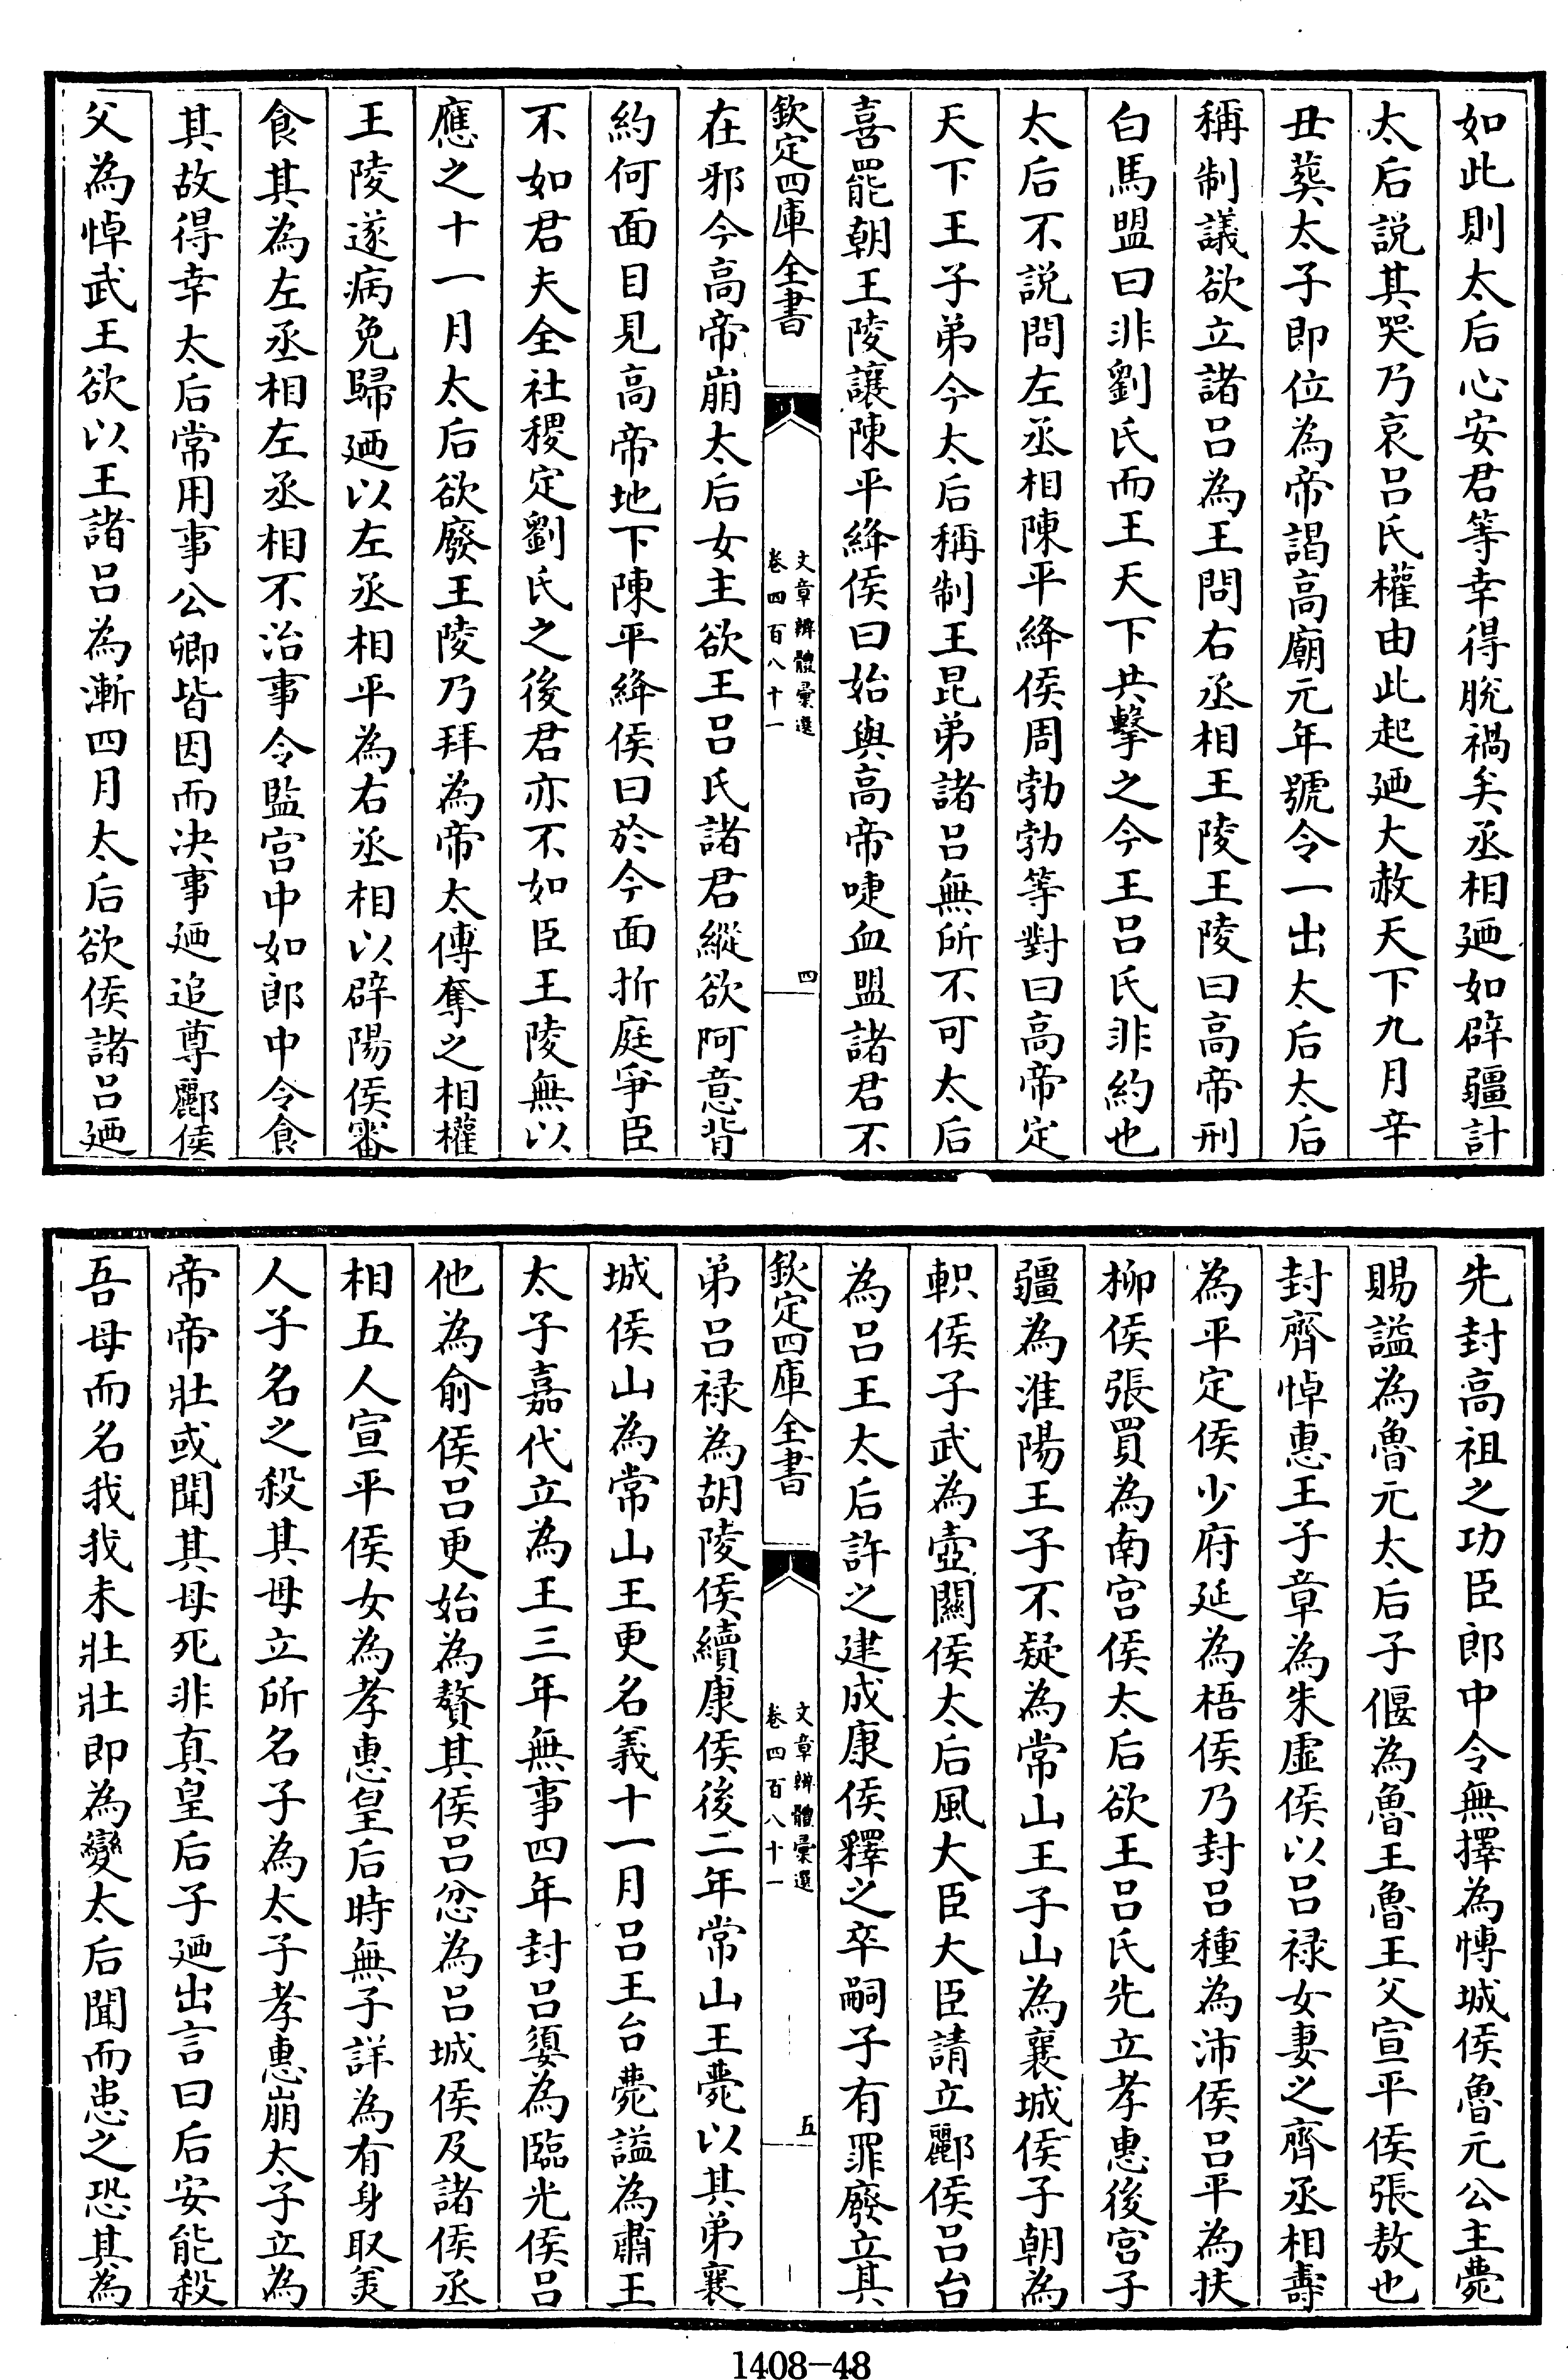 如此則太后心安君等幸得脫禍矣丞相廼如辟疆計
太后說其哭乃哀呂氏權由此起廼大赦天下九月辛
丑葬太子即位為帝謁高廟元年號令一出太后太后
稱制議欲立諸呂為王問右丞相王陵王陵曰高帝刑
白馬盟曰非劉氏而王天下共擊之今王呂氏非約也
太后不說問左丞相陳平絳侯周勃勃等對曰高帝定
天下王子弟今太后稱制王昆弟諸呂無所不可太后
喜罷朝王陵讓陳平絳侯曰始與高帝啑血盟諸君不
欽定四庫全書
文章辨體彙選
卷四百八十一
四
在邪今高帝崩太后女主欲王呂氏諸君縱欲阿意背
約何面目見高帝地下陳平絳侯曰於今面折庭爭臣
不如君夫全社稷定劉氏之後君亦不如臣王陵無以
應之十一月太后欲廢王陵乃拜為帝太傅奪之相權
王陵遂病免歸廼以左丞相平為右丞相以辟陽侯審
食其為左丞相左丞相不治事令監宫中如郎中令食
其故得幸太后常用事公卿皆因而决事廼追尊酈侯
父為悼武王欲以王諸呂為漸四月太后欲侯諸呂廼
先封高祖之功臣郎中令無擇為博城侯魯元公主薨
賜謚為魯元太后子偃為魯王魯王父宣平侯張敖也
封齊悼惠王子章為朱虛侯以呂祿女妻之齊丞相壽
為平定侯少府延為梧侯乃封呂種為沛侯呂平為扶
柳侯張買為南宫侯太后欲王呂氏先立孝惠後宫子
疆為淮陽王子不疑為常山王子山為襄城侯子朝為
軹侯子武為壺關侯太后風大臣大臣請立酈侯呂台
為呂王太后許之建成康侯釋之卒嗣子有罪廢立其
欽定四庫全書
文章辨體彙選
卷四百八十一
五
弟呂祿為胡陵侯續康侯後二年常山王薨以其弟襄
城侯山為常山王更名義十一月呂王台薨謚為肅王
太子嘉代立為王三年無事四年封呂嬃為臨光侯呂
他為俞侯呂更始為贅其侯呂忿為呂城侯及諸侯丞
相五人宣平侯女為孝惠皇后時無子詳為有身取美
人子名之殺其母立所名子為太子孝惠崩太子立為
帝帝壯或聞其母死非真皇后子廼出言曰后安能殺
吾母而名我我未壯壯即為變太后聞而患之恐其為
1408-48